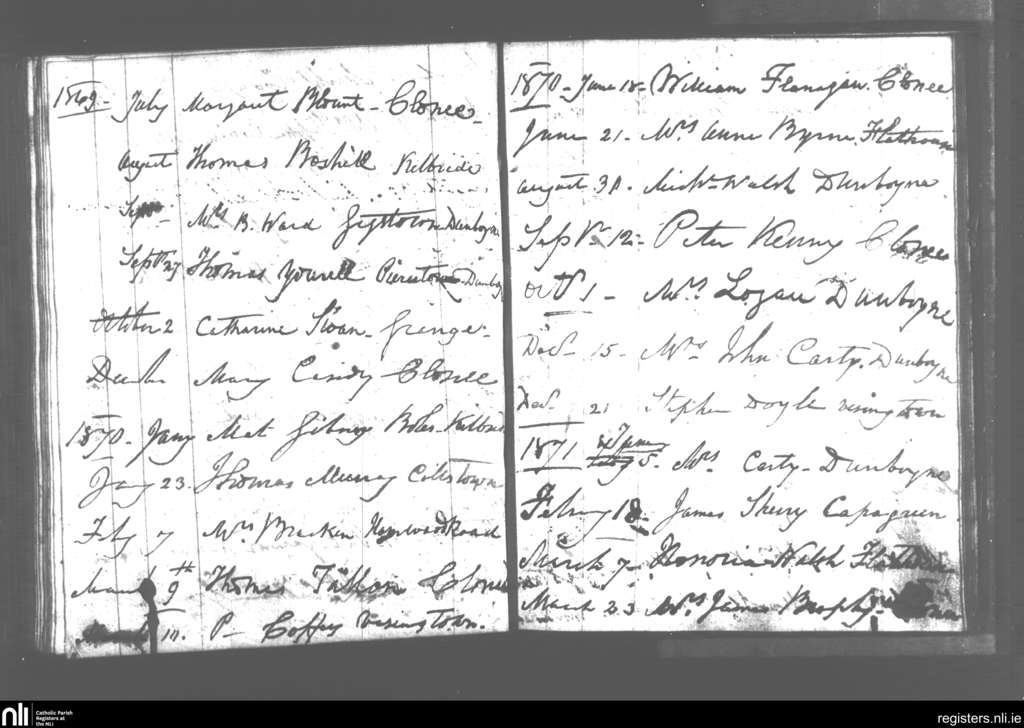 1869 - July Margaret Blount - Clonee -
August Thomas Boshell Kilbride
Sept Mrs B. Ward Gyltown Dunboyne
Septbr 27 Thomas Yourell Piercetown Dunboy
October 2 Catharine Sloan - Grange -
Mary Cindy Clonee
1870 - Jany Mat Gibney Kilbride
Jany 23. Thomas Murray
Feby 7 Mrs Bracken Road
March 9th Thomas Tallon Clonee
March 11. P - Coffey Vesingtown.
1870 - June 18 - William Flanagan. Clonee
June 21 - Mrs Anne Byrne. Flathouse
August 30. Walsh Dunboyne
Sepbr 12 - Peter Kenny Clonee
Octb 1 - Mrs Logan Dunboyne
Decb - 15 - Mrs John Carty. Dunboyne
Decb. 21 Stephen Doyle Vesingtown
1871 Jany 5. Mrs Carty - Dunboyne
Febry 18 - James Sherry
March 7 - Honoria Walsh
March 23 - Mrs James Brophy -
nli Catholic Parish
Registers at
the NLI
registers.nli.ie